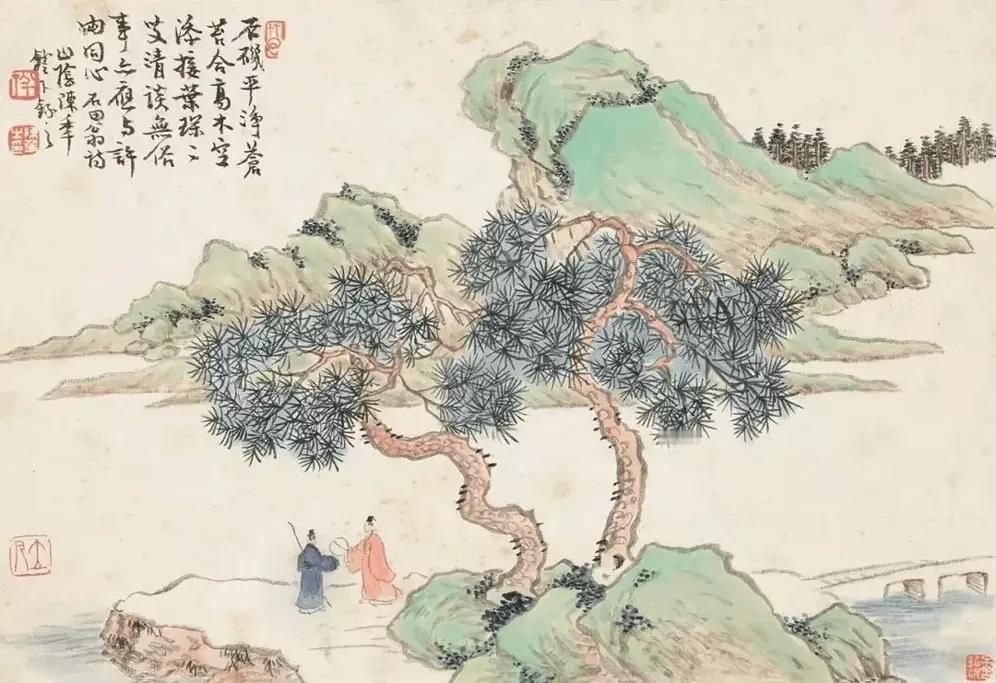 石磯平淨蒼
苔合高木空
添接葉深二
叟清談無俗
事亦應與許
由同心 石田翁詩
山陰陳年
鐙下錄之